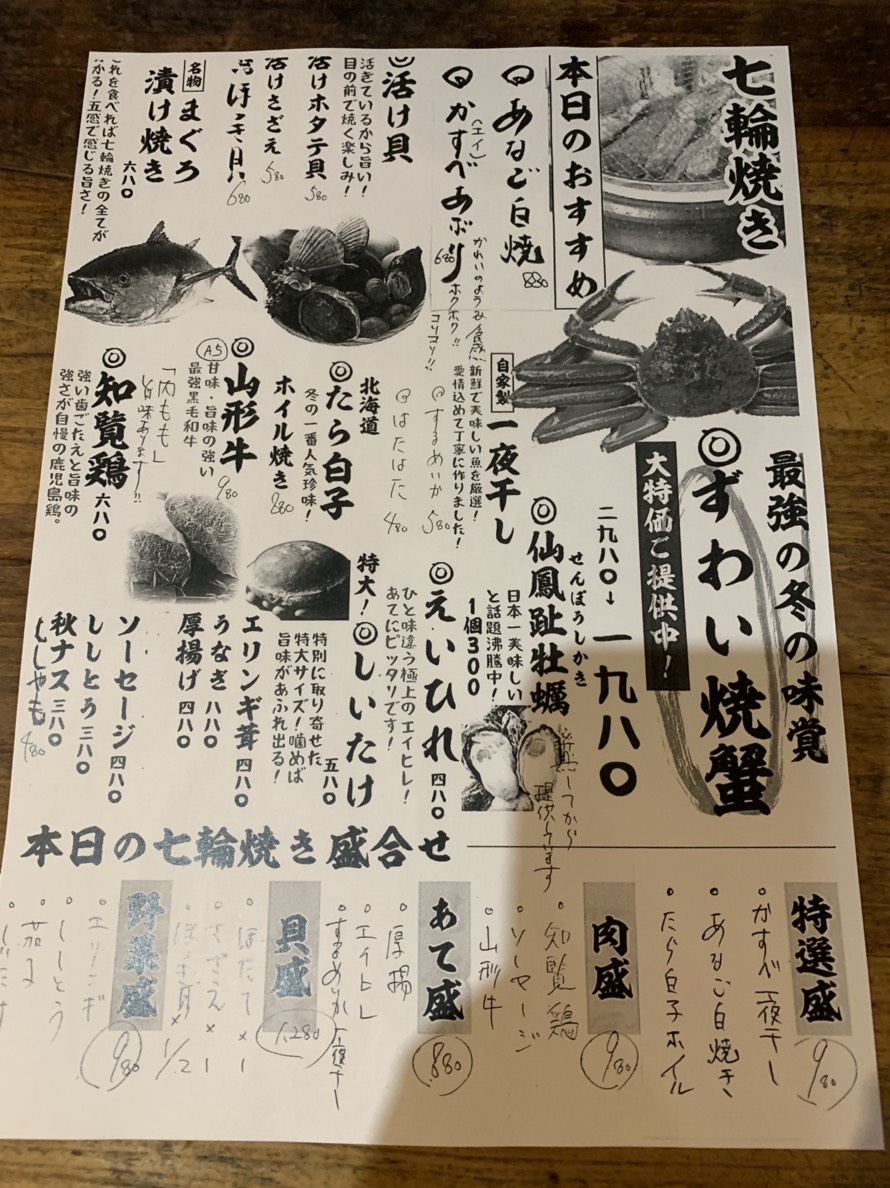 七輪焼き
本日のおすすめ
◎あなご白焼
880
◎かすべあぶり
(エイ)
680
ホクホク!!
コリコリ!!
◎活け貝
活きているから旨い!
目の前で焼く楽しみ!
活けホタテ貝
580
活けさざえ
580
ほっき貝
680
名物
まぐろ
漬け焼き
六八〇
これを食べれば七輪焼きの全てが
かる!五感で感じる旨さ!
最強の冬の味覚
◎ずわい焼蟹
大特価ご提供中!
二九八〇→一九八〇
せんぽうしかき
◎仙鳳趾牡蠣
日本一美味しい
と話題沸騰中!
1個300
してから
提供しています
自家製
一夜干し
新鮮で美味しい魚を厳選!
愛情込めて丁寧に作りました!
◎するめいか 580
◎はたはた 480
北海道
◎たら白子
冬の一番人気珍味!
ホイル焼き
880
◎山形牛
A5
甘味・旨味の強い
最強黒毛和牛
980
「内もも」
旨味あります!!
◎知覧鶏 六八〇
強い歯ごたえと旨味の
強さが自慢の鹿児島鶏。
◎えいひれ 四八〇
ひと味違う極上のエイヒレ!
あてにピッタリです!
特大!
◎しいたけ
五八〇
特別に取り寄せた
特大サイズ!噛めば
旨味があふれ出る!
エリンギ茸 四八〇
うなぎ 八八〇
厚揚げ 四八〇
ソーセージ 四八〇
ししとう 三八〇
秋ナス 三八〇
ししゃも 480
本日の七輪焼き盛合せ
特選盛
980
・かすべ一夜干し
・あなご白焼き
・たら白子ホイル
肉盛
980
・知覧鶏
・ソーセージ
・山形牛
あて盛
880
・厚揚
・エイヒレ
・するめいか一夜干し
貝盛
1,280
・ほたて×1
・さざえ×1
・ほっき貝×1/2
野菜盛
980
・エリンギ
・ししとう
・茄子